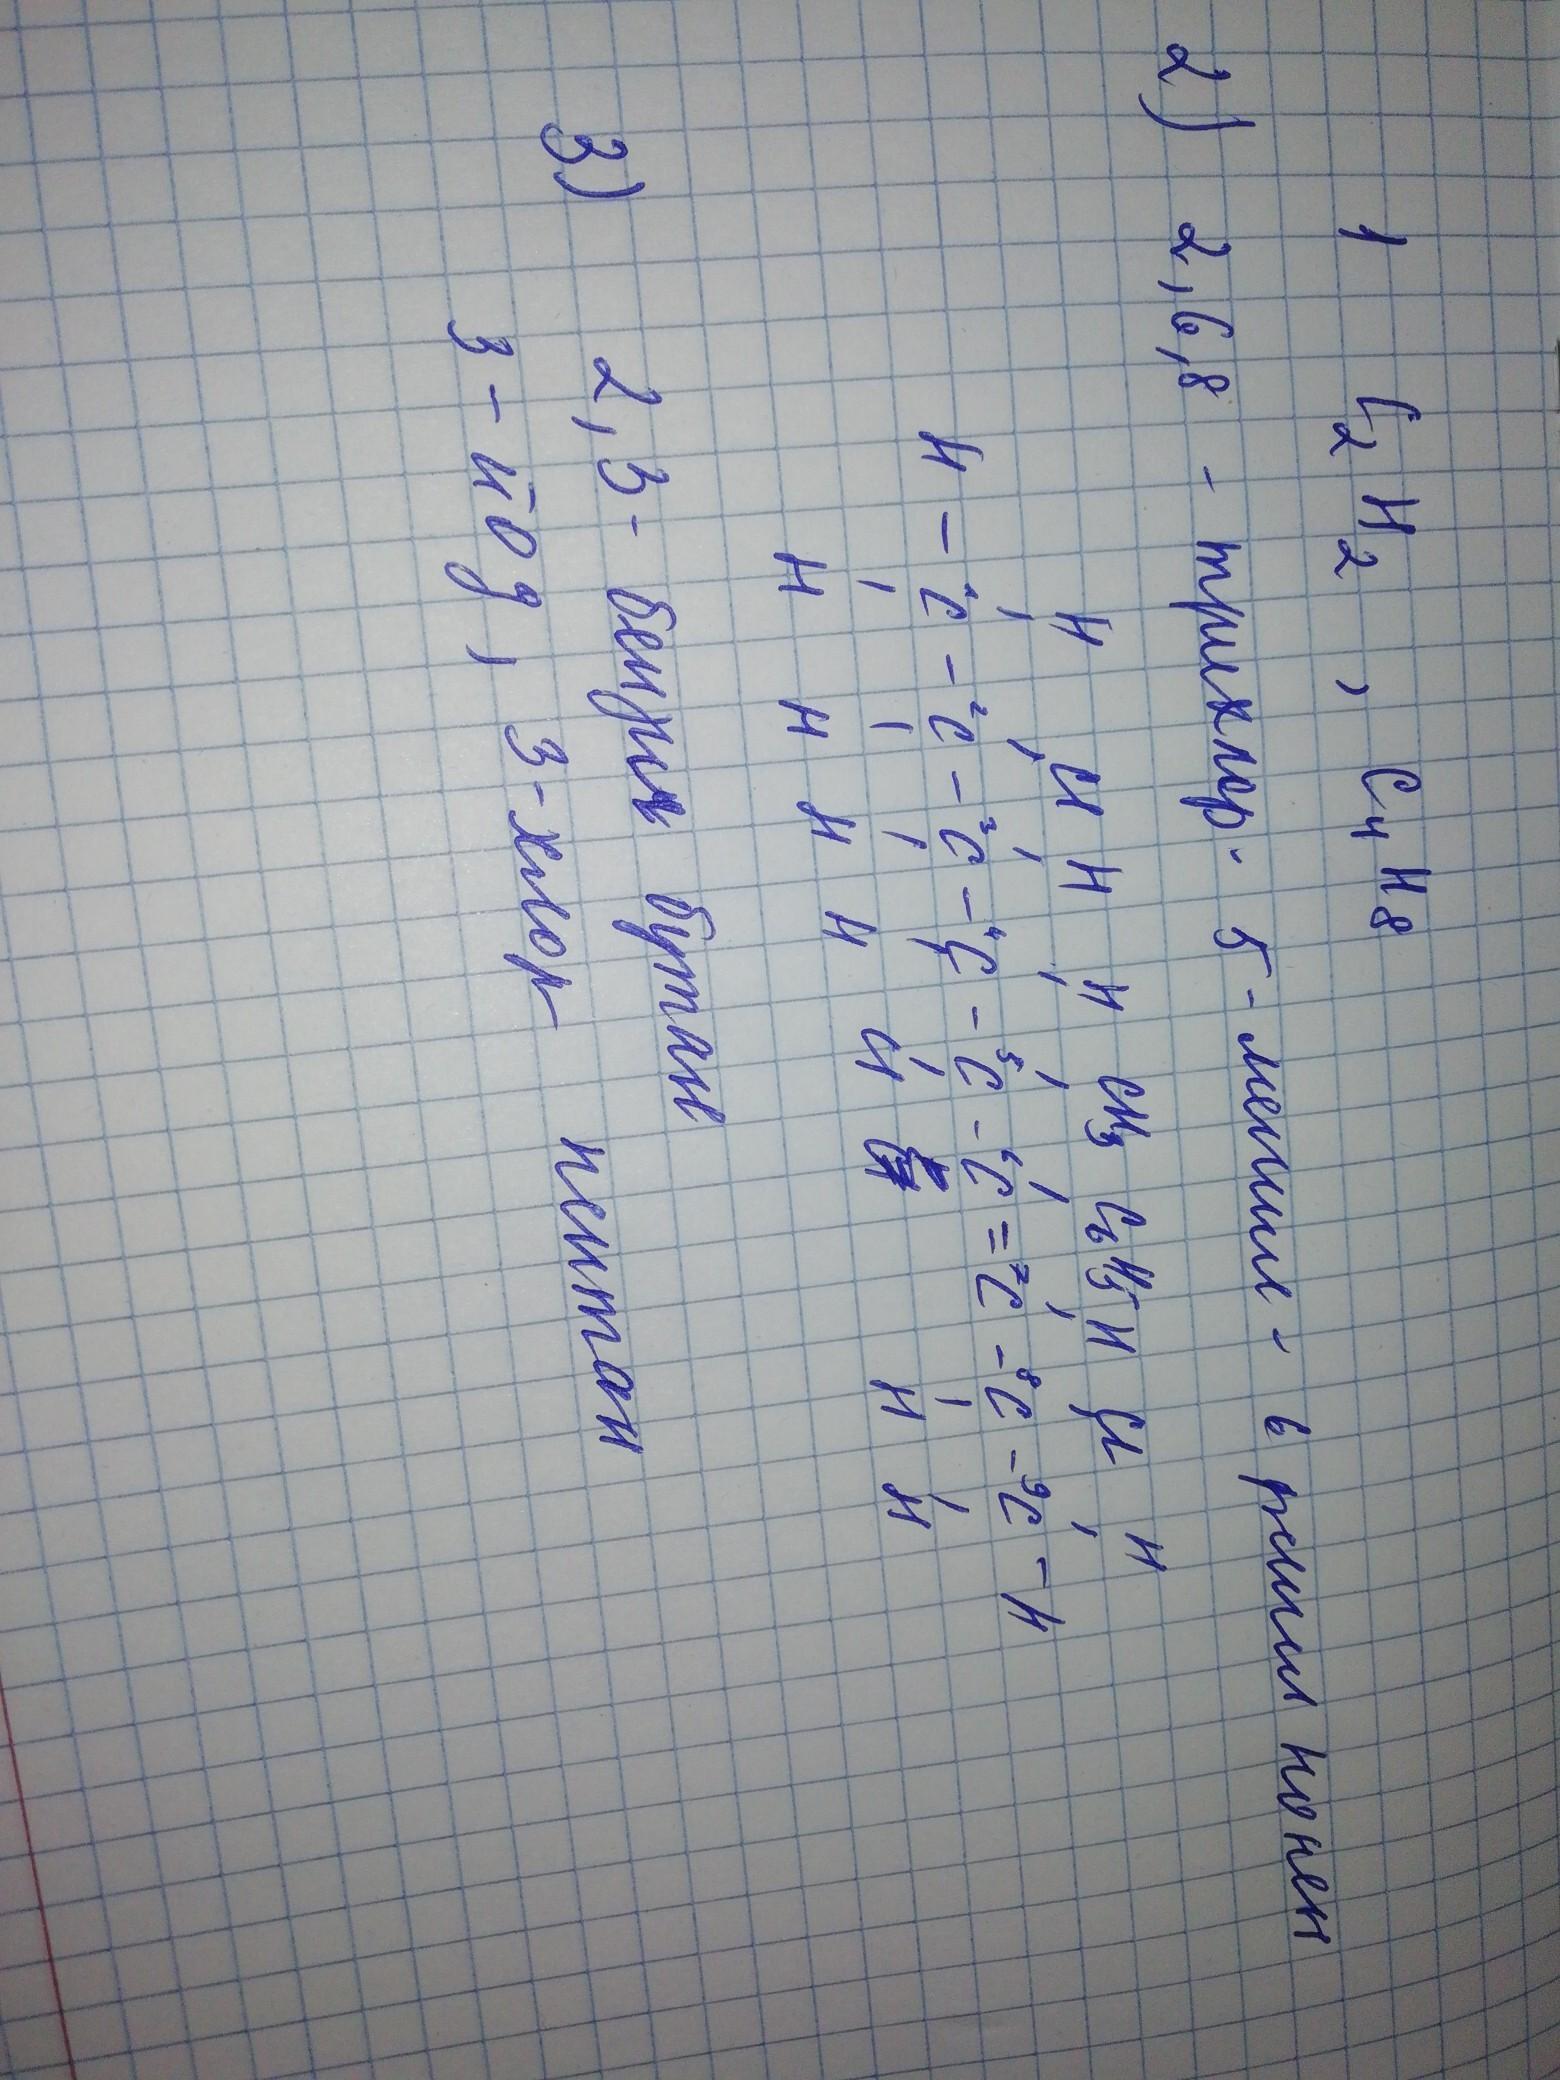 1 C2H2, C4H8
2) 2,6,8 - трихлор- 5-метил- 6 фенил нонен
H Cl H H CH3 C6H5 H Cl H
H - 1C - 2C - 3C - 4C - 5C - 6C = 7C - 8C - 9C - H
H H H H Cl H H
3) 2,3- бензил бутан
3-йод, 3-хлор пентан